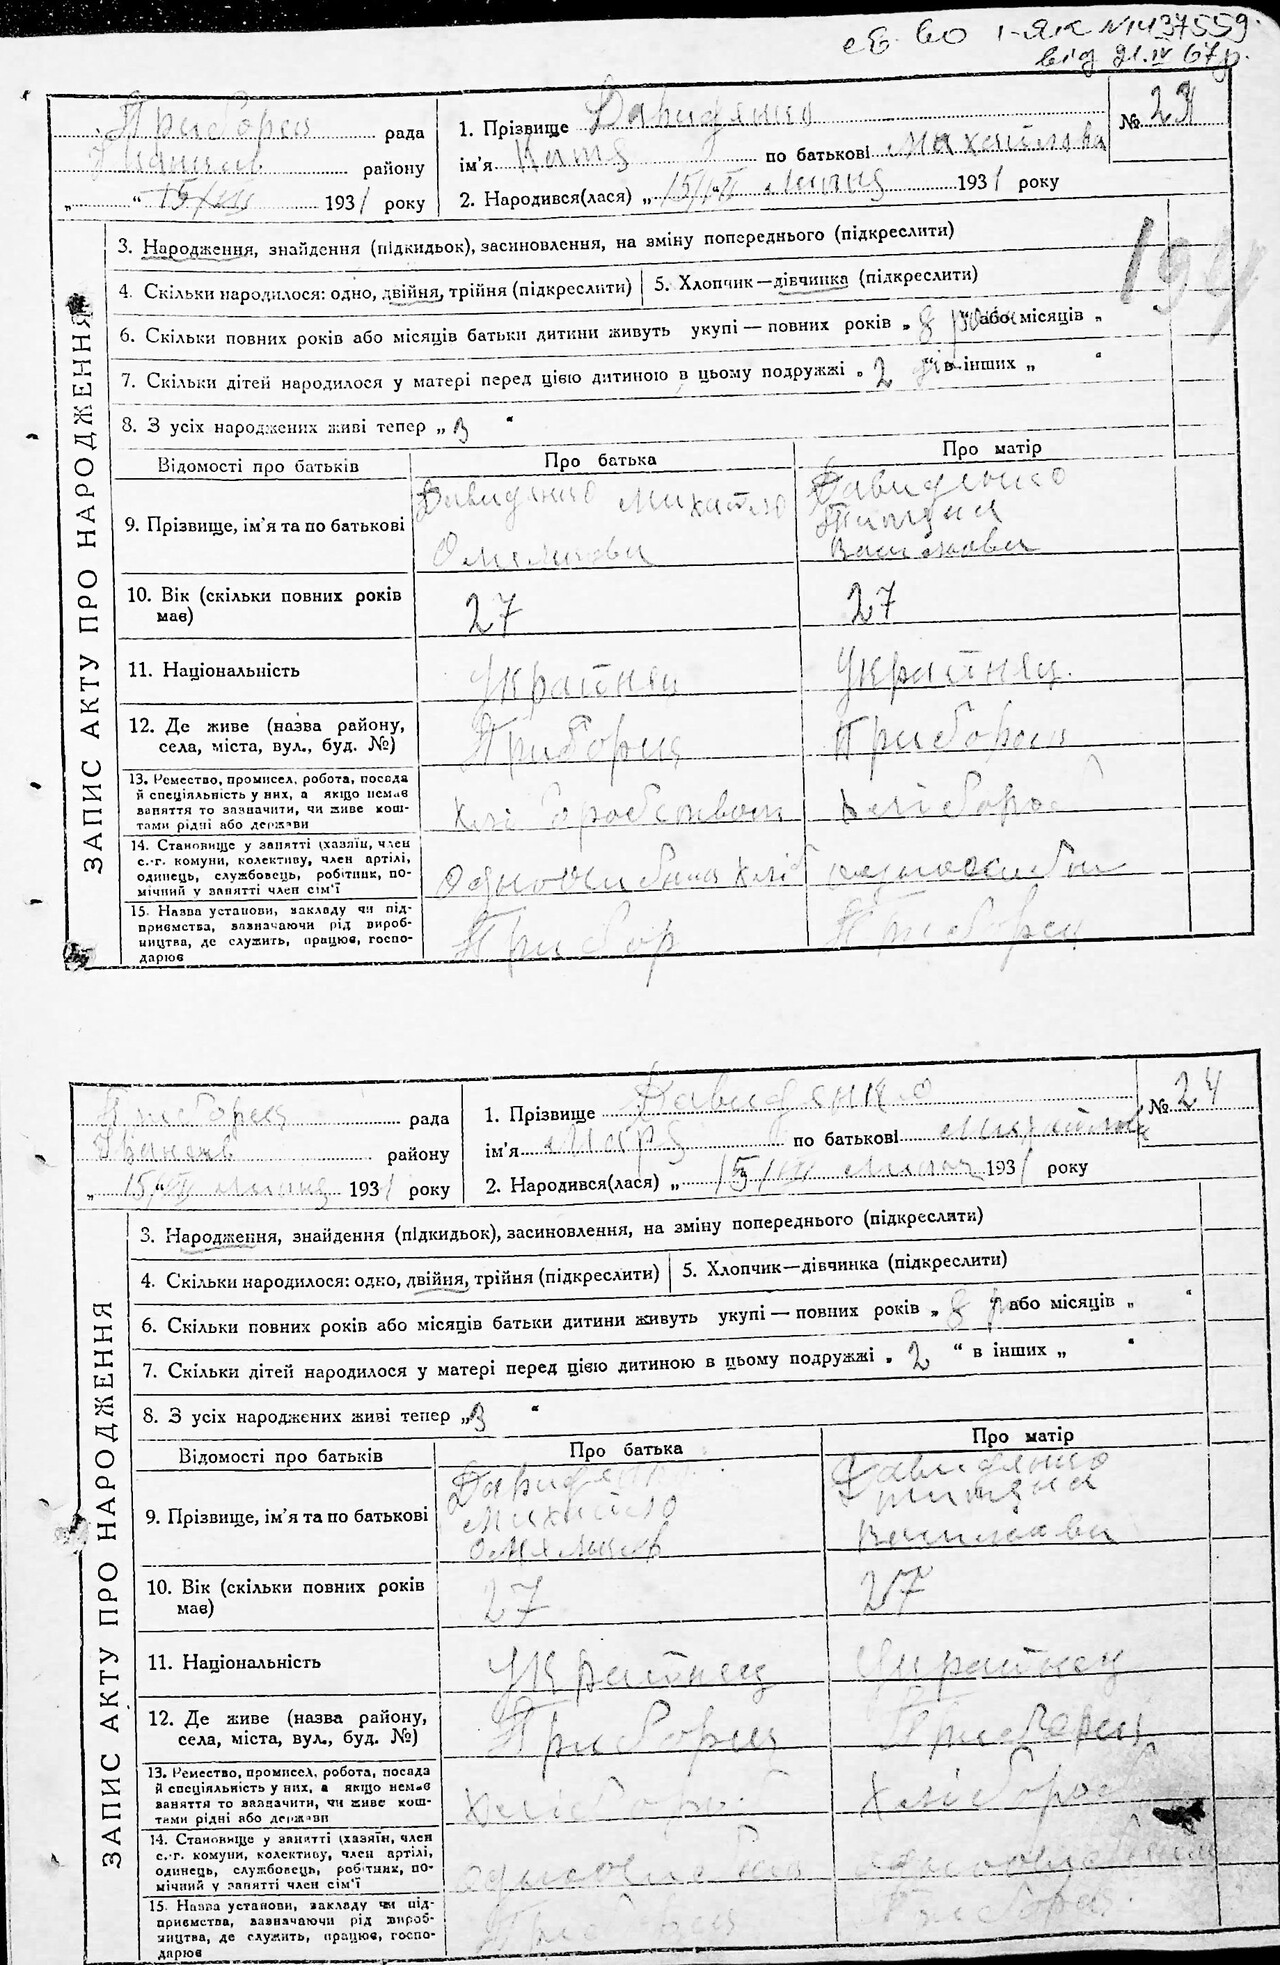 св. во І-ЯК №1437559
від 21.IV 67р.
Приборец рада
району
„ “ 15/VII 1931 року
1. Прізвище Давиденко
ім'я Катя по батькові Михайлова
2. Народився(лася) „ 15/VII 1931 року
№ 23
ЗАПИС АКТУ ПРО НАРОДЖЕННЯ
3. Народження, знайдення (підкидьок), засиновлення, на зміну попереднього (підкреслити)
4. Скільки народилося: одно, двійня, трійня (підкреслити)
5. Хлопчик—дівчинка (підкреслити)
6. Скільки повних років або місяців батьки дитини живуть укупі — повних років „ 8 або місяців „
7. Скільки дітей народилося у матері перед цією дитиною в цьому подружжі „ 2 “ в інших „ “
8. З усіх народжених живі тепер „ 3 “
Відомості про батьків
Про батька
Про матір
9. Прізвище, ім'я та по батькові
Давиденко Михайло
Давиденко
10. Вік (скільки повних років має)
27
27
11. Національність
Українец
Українец
12. Де живе (назва району, села, міста, вул., буд. №)
Приборец
Приборец
13. Ремество, промисел, робота, посада й спеціяльність у них, а якщо немає заняття то зазначити, чи живе коштами рідні або держави
14. Становище у занятті (хазяїн, член с.-г. комуни, колективу, член артілі, одинець, службовець, робітник, помічний у занятті член сім'ї
15. Назва установи, закладу чи підприємства, зазначаючи рід виробництва, де служить, працює, господарює
Прибор
Приборец
Приборец рада
району
„ 15/VII 1931 року
1. Прізвище Давиденко
ім'я по батькові
2. Народився(лася) „ 15/VII 1931 року
№ 24
ЗАПИС АКТУ ПРО НАРОДЖЕННЯ
3. Народження, знайдення (підкидьок), засиновлення, на зміну попереднього (підкреслити)
4. Скільки народилося: одно, двійня, трійня (підкреслити)
5. Хлопчик—дівчинка (підкреслити)
6. Скільки повних років або місяців батьки дитини живуть укупі — повних років „ 8 р або місяців „ “
7. Скільки дітей народилося у матері перед цією дитиною в цьому подружжі „ 2 “ в інших „ “
8. З усіх народжених живі тепер „ 3 “
Відомості про батьків
Про батька
Про матір
9. Прізвище, ім'я та по батькові
Давиденко
Давиденко
Михайло
10. Вік (скільки повних років має)
27
27
11. Національність
Українец
Українец
12. Де живе (назва району, села, міста, вул., буд. №)
Приборец
Приборец
13. Ремество, промисел, робота, посада й спеціяльність у них, а якщо немає заняття то зазначити, чи живе коштами рідні або держави
14. Становище у занятті (хазяїн, член с.-г. комуни, колективу, член артілі, одинець, службовець, робітник, помічний у занятті член сім'ї
15. Назва установи, закладу чи підприємства, зазначаючи рід виробництва, де служить, працює, господарює